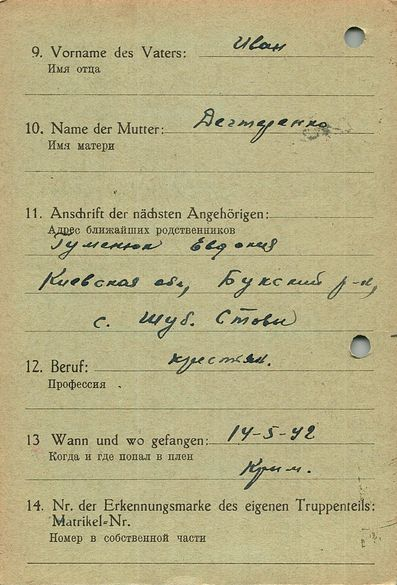 9. Vorname des Vaters: Иван
Имя отца
10. Name der Mutter: Дегтеренко
Имя матери
11. Anschrift der nächsten Angehörigen:
Адрес ближайших родственников
Гуменюк Евдокия
Киевская обл, Букский р-н,
с. Шуб. Стовы
12. Beruf: крестьян.
Профессия
13 Wann und wo gefangen: 14-5-42
Когда и где попал в плен
Крым.
14. Nr. der Erkennungsmarke des eigenen Truppenteils:
Matrikel-Nr.
Номер в собственной части